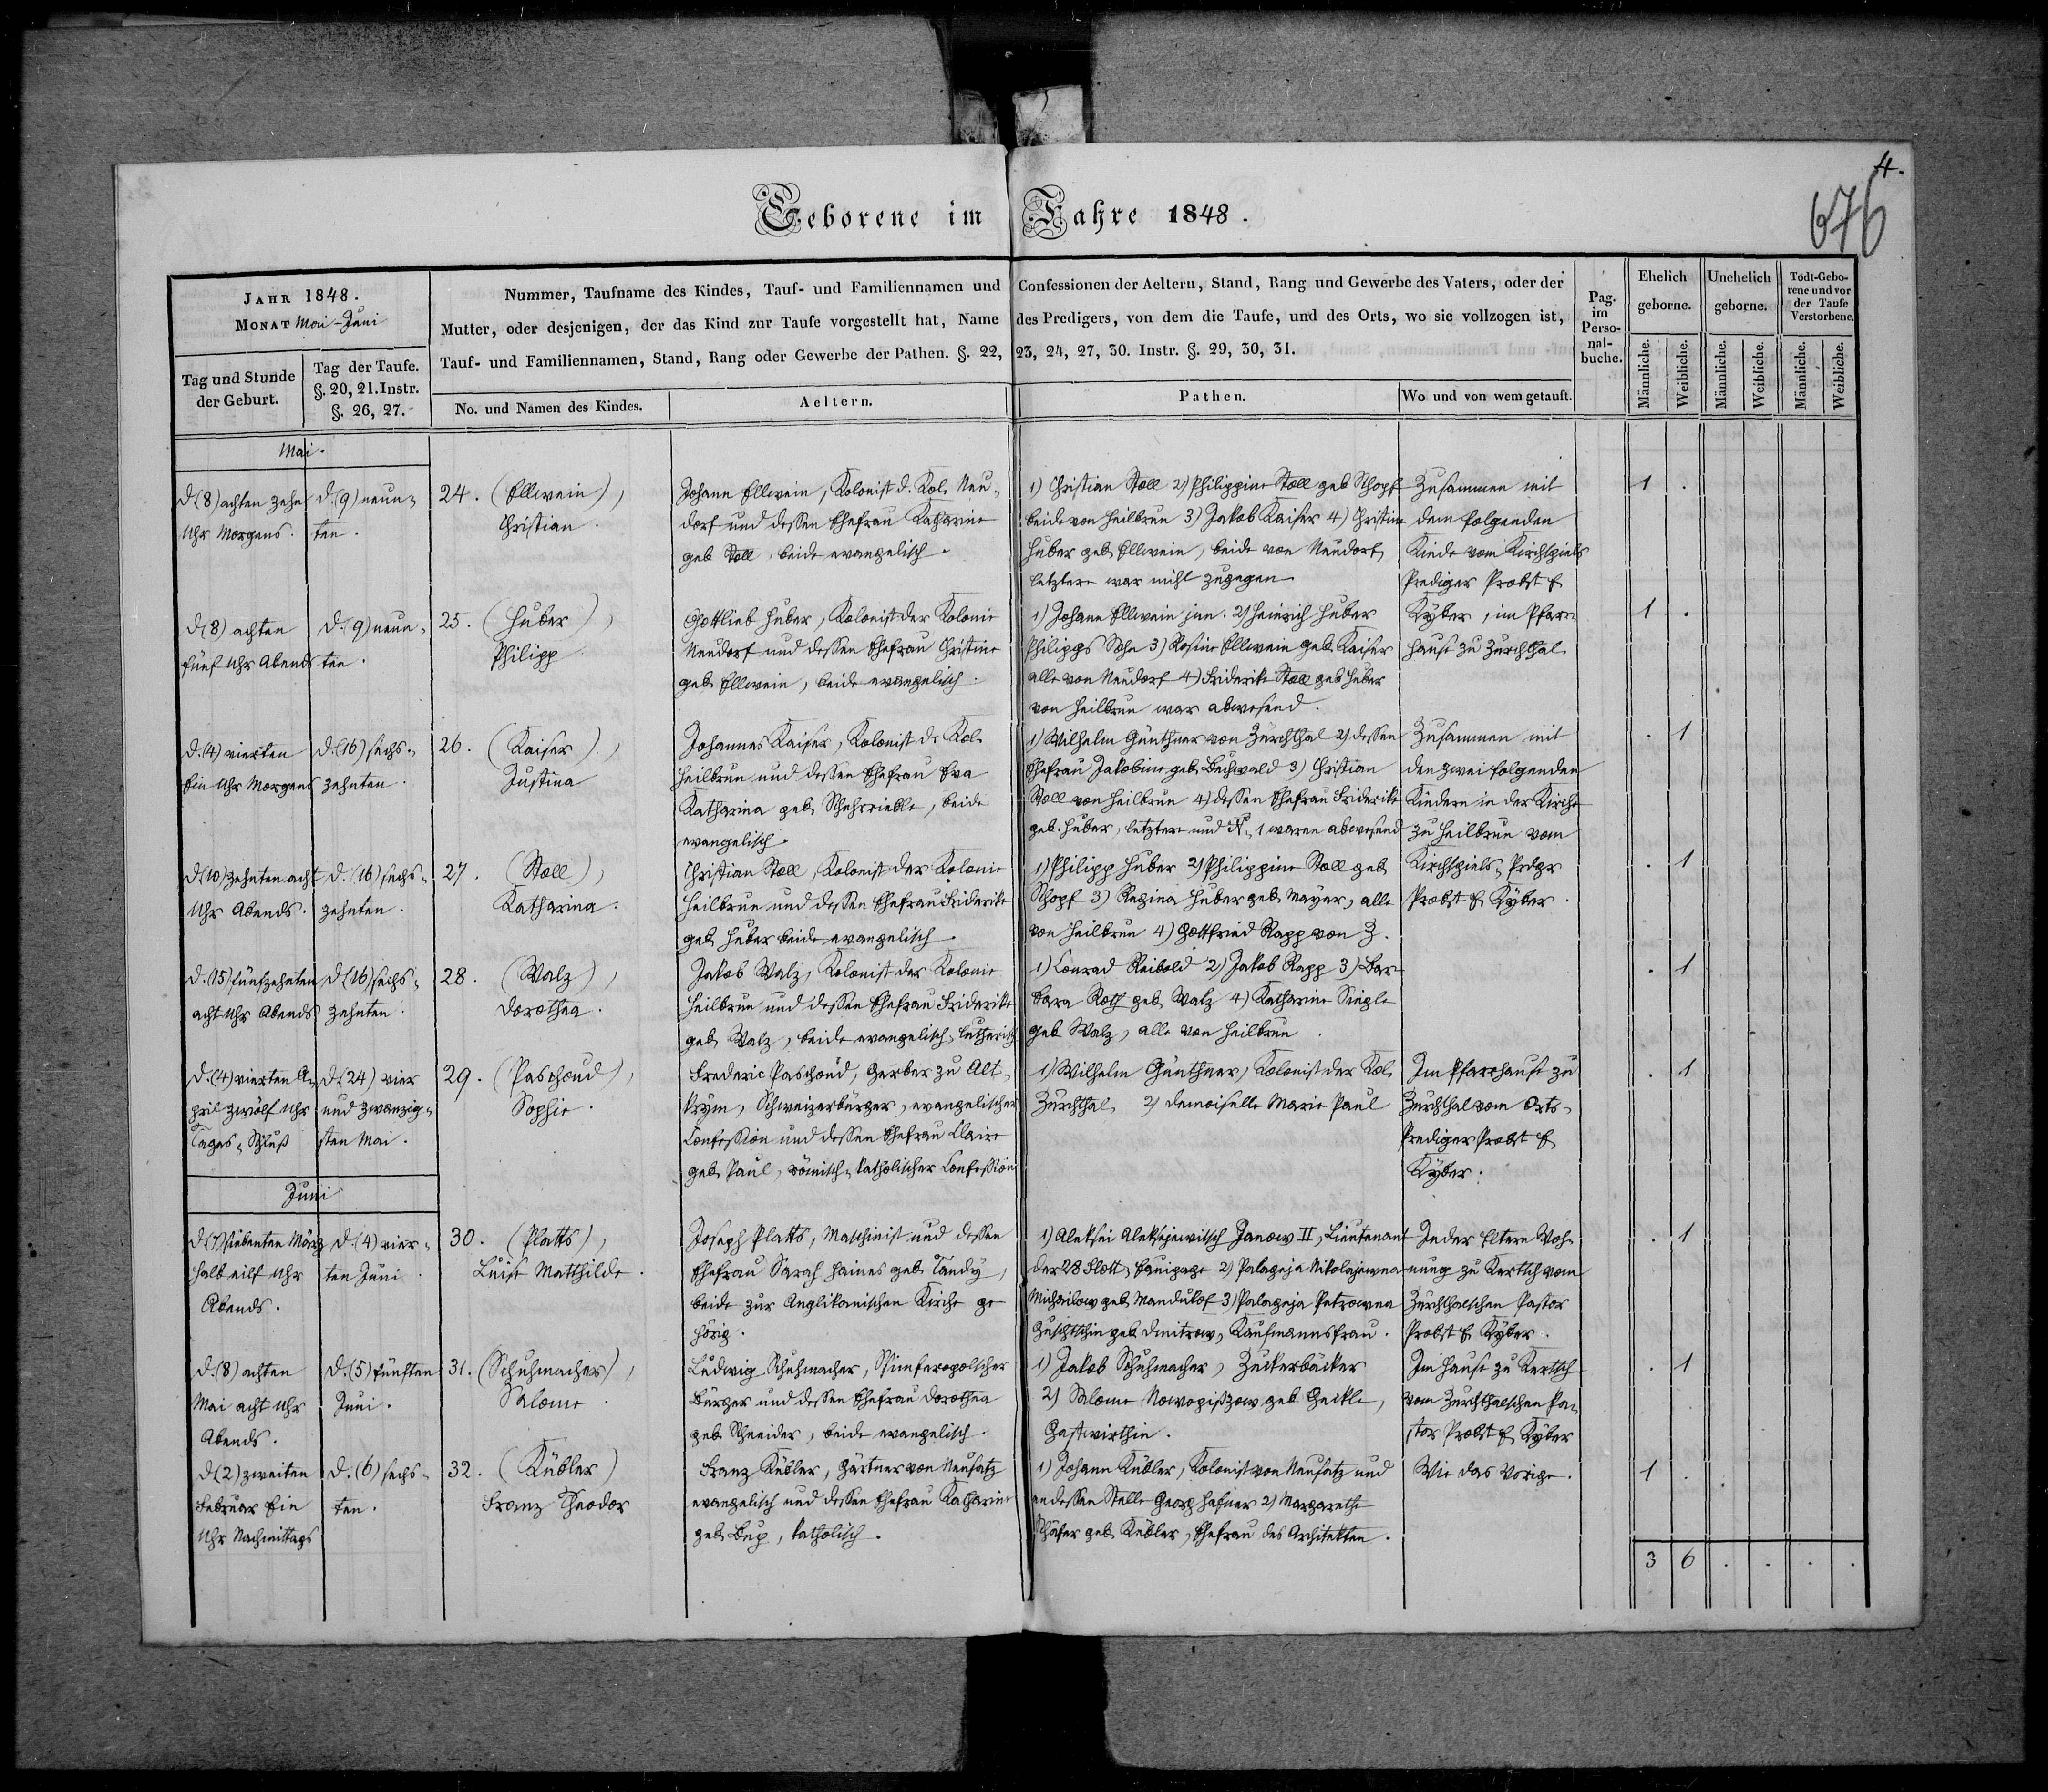 4.
676
Geborene im Jahre 1848.
JAHR 1848.
MONAT Mai-Juni
Tag und Stunde
der Geburt.
Tag der Taufe.
§. 20, 21. Instr.
§. 26, 27.
Nummer, Taufname des Kindes, Tauf- und Familiennamen und Confessionen der Aeltern, Stand, Rang und Gewerbe des Vaters, oder der
Mutter, oder desjenigen, der das Kind zur Taufe vorgestellt hat, Name des Predigers, von dem die Taufe, und des Orts, wo sie vollzogen ist,
Tauf- und Familiennamen, Stand, Rang oder Gewerbe der Pathen. §. 22, 23, 24, 27, 30. Instr. §. 29, 30, 31.
No. und Namen des Kindes.
Aeltern.
Pathen.
Wo und von wem getauft.
Pag.
im
Perso-
nal-
buche.
Ehelich
geborne.
Unehelich
geborne.
Todt-Gebo-
rene und vor
der Taufe
Verstorbene.
Männliche.
Weibliche.
Männliche.
Weibliche.
Männliche.
Weibliche.
Mai.
d. (8) achten zehn
Uhr Morgens.
d. (9) neun-
ten.
24. (Ellwein),
Christian.
Johann Ellwein, Kolonist d. Kol. Neu-
dorf und dessen Ehefrau Katharine
geb. Stoll, beide evangelisch.
1) Christian Stoll 2) Philippine Stoll geb. Schopf
beide von Heilbrun 3) Jakob Kaiser 4) Christine
Huber geb. Ellwein, beide von Neudorf,
letztere war nicht zugegen.
Zusammen mit
dem folgenden
Kinde vom Kirchspiels
Prediger Probst E.
1 .
d. (8) achten
fünf Uhr Abends
d. (9) neun-
ten.
25. (Huber),
Philipp
Gottlieb Huber, Kolonist der Kolonie
Neudorf und dessen Ehefrau Christine
geb. Ellwein, beide evangelisch.
1) Johann Ellwein jun. 2) Heinrich Huber
Philipps Sohn 3) Rosine Ellwein geb. Kaiser
alle von Neudorf 4) Friderike Stoll geb. Huber
von Heilbrun war abwesend.
Kyber, im Pfarr-
hause zu Zürchthal
1 .
d. (4) vierten
Ein Uhr Morgens
d. (16) sechs-
zehnten.
26. (Kaiser),
Justina
Johannes Kaiser, Kolonist d. Kol.
Heilbrun und dessen Ehefrau Eva
Katharina geb. Schehrrieble, beide
evangelisch.
1) Wilhelm Günthner von Zürchthal 2) dessen
Ehefrau Jakobine geb. Buchwald 3) Christian
Stoll von Heilbrun 4) dessen Ehefrau Friderike
geb. Huber, letztere und N. 1 waren abwesend
Zusammen mit
den zwei folgenden
Kindern in der Kirche
zu Heilbrun vom
. 1
d. (10) zehnten acht
Uhr Abends.
d. (16) sechs-
zehnten.
27. (Stoll),
Katharina.
Christian Stoll, Kolonist der Kolonie
Heilbrun und dessen Ehefrau Friderike
geb. Huber beide evangelisch.
1) Philipp Huber 2) Philippine Stoll geb.
Schopf 3) Regina Huber geb. Mayer, alle
von Heilbrun 4) Gottfried Rapp von Z.
Kirchspiels-Prdgr
Probst E. Kyber.
. 1
d. (15) fünfzehnten
acht Uhr Abends
d. (16) sechs-
zehnten.
28. (Walz),
Dorothea.
Jakob Walz, Kolonist der Kolonie
Heilbrun und dessen Ehefrau Friderike
geb. Walz, beide evangelisch-lutherisch
1) Conrad Reibold 2) Jakob Rapp 3) Bar-
bara Roth geb. Walz 4) Katharine Single
geb. Walz, alle von Heilbrun.
. 1
d. (4) vierten A-
pril zwölf Uhr
Tages-Schluß
d. (24) vier
und zwanzig-
sten Mai.
29. (Paschoud),
Sophie.
Frederic Paschoud, Gerber zu Alt-
krym, Schweizerbürger, evangelischer
Confession und dessen Ehefrau Claire
geb. Paul, römisch-katholischer Confession
1) Wilhelm Günthner, Kolonist der Kol.
Zürchthal, 2) Demoiselle Marie Paul
Im Pfarrhause zu
Zürchthal vom Orts-
Prediger Probst E.
Kyber.
. 1
Juni
d. (7) siebenten März
halb eilf Uhr
Abends.
d. (4) vier-
ten Juni.
30. (Platts),
Luise Matthilde.
Joseph Platts, Maschinist und dessen
Ehefrau Sarah Haines geb. Tandy,
beide zur Anglikanischen Kirche ge
hörig.
1) Aleksei Aleksejewitsch Janow II, Lieutenant
der 28 Flott-Equipage 2) Palageja Nikolajewna
Michailow geb. Mandukof 3) Palageja Petrowna
Guschtschin geb. Dmitrow, Kaufmannsfrau.
In der Eltern Woh-
nung zu Kertsch vom
Zürchthalschen Pastor
Probst E. Kyber.
. 1
d. (8) achten
Mai acht Uhr
Abends.
d. (5) fünften
Juni.
31. (Schuhmacher),
Salome.
Ludwig Schuhmacher, Simferopolscher
Bürger und dessen Ehefrau Dorothea
geb. Schneider, beide evangelisch.
1) Jakob Schuhmacher, Zuckerbäcker
2) Salome Nowopißzow geb. Geckle,
Gastwirthin.
Im Hause zu Kertsch
vom Zürchthalschen Pa-
stor Probst E. Kyber
. 1
d. (2) zweiten
Februar Ein
Uhr Nachmittags
d. (6) sechs-
ten.
32. (Kübler)
Franz Theodor
Franz Kübler, Gärtner von Neusatz
evangelisch und dessen Ehefrau Katharine
geb. Bup, katholisch.
1) Johann Kübler, Kolonist von Neusatz und
an dessen Stelle Georg Hafner 2) Margarethe
Schäfer geb. Kübler, Ehefrau des Architekten.
Wie das Vorige.
1 .
3 6 . . . .